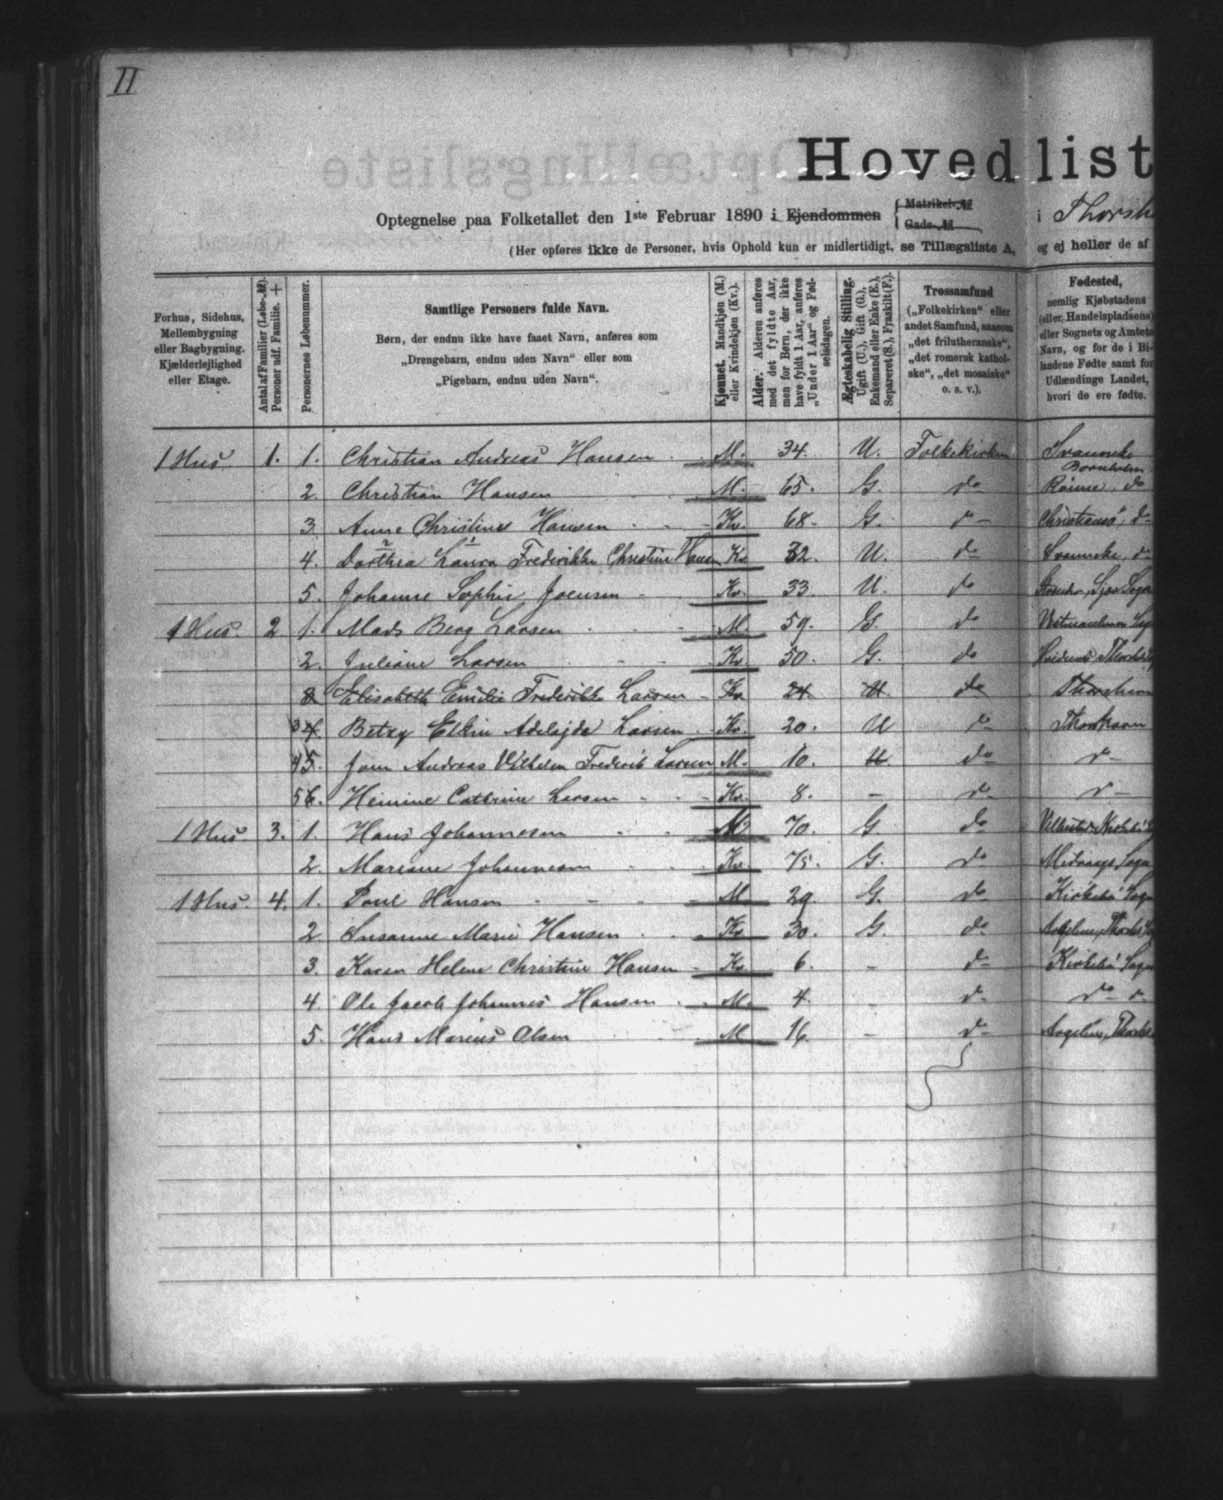 II
Hovedlist
Optegnelse paa Folketallet den 1ste Februar 1890 i Ejendommen { Matrikel-№ Gade-№ i Thorsh
(Her opføres ikke de Personer, hvis Ophold kun er midlertidigt, se Tillægsliste A, og ej heller de af
Forhus, Sidehus, Mellembygning eller Bagbygning. Kjælderlejlighed eller Etage.
Antal af Familier (Løbe-№). Personer udf. Familie. +
Personernes Løbenummer.
Samtlige Personers fulde Navn.
Børn, der endnu ikke have faaet Navn, anføres som
„Drengebarn, endnu uden Navn“ eller som
„Pigebarn, endnu uden Navn“.
Kjønnet. Mandkjøn (M.) eller Kvindekjøn (Kv.).
Alder. Alderen anføres med det fyldte Aar, men for Børn, der ikke have fyldt 1 Aar, anføres „Under 1 Aar“ og Fødselsdagen.
Ægteskabelig Stilling. Ugift (U.), Gift (G.), Enkemand eller Enke (E.), Separeret (S.), Fraskilt (F.).
Trossamfund („Folkekirken“ eller andet Samfund, saasom „det frilutheranske“, „det romersk katholske“, „det mosaiske“ o. s. v.).
Fødested, nemlig Kjøbstadens (eller, Handelspladsens) eller Sognets og Amtets Navn, og for de i Bilandene Fødte samt for Udlændinge Landet, hvori de ere fødte.
1 Hus. 1. 1. Christian Andreas Hansen M. 34. U. Folkekirken Svanneke Bornholm
2. Christian Hansen M. 65. G. do Rønne, do
3. Anne Christine Hansen Kv. 68. G. do Christiansø, do
4. Dorthea Laura Frederikke Christine Hansen Kv. 32. U. do Svanneke, do
5. Johanne Sophie Joensen Kv. 33. U. do
1 Hus. 2 1. Mads Berg Larsen M. 59. G. do
2. Juliane Larsen Kv. 50. G. do
3 Elisabeth Emilie Frederikke Larsen Kv 24 U do Thorshavn
3 4 Betzy Elkin Adelajde Larsen Kv. 20. U do Thorshavn
4 5. Jom Andreas Vilhelm Frederik Larsen M. 10. U. do do
5 6. Heinine Cathrine Larsen Kv. 8. – do do
1 Hus. 3. 1. Hans Johannesen M 70. G do
2. Mariane Johannesen Kv. 75. G. do Midvaags Sogn
1 Hus. 4. 1. Poul Hansen M. 29. G. do Kirkebø Sogn
2 Susanne Marie Hansen Kv 30. G. do
3. Karen Helene Christine Hansen Kv 6. – do Kirkebø Sogn
4 Ole Jacob Johannes Hansen M. 4. do do
5. Hans Marius Olsen M 16. – do